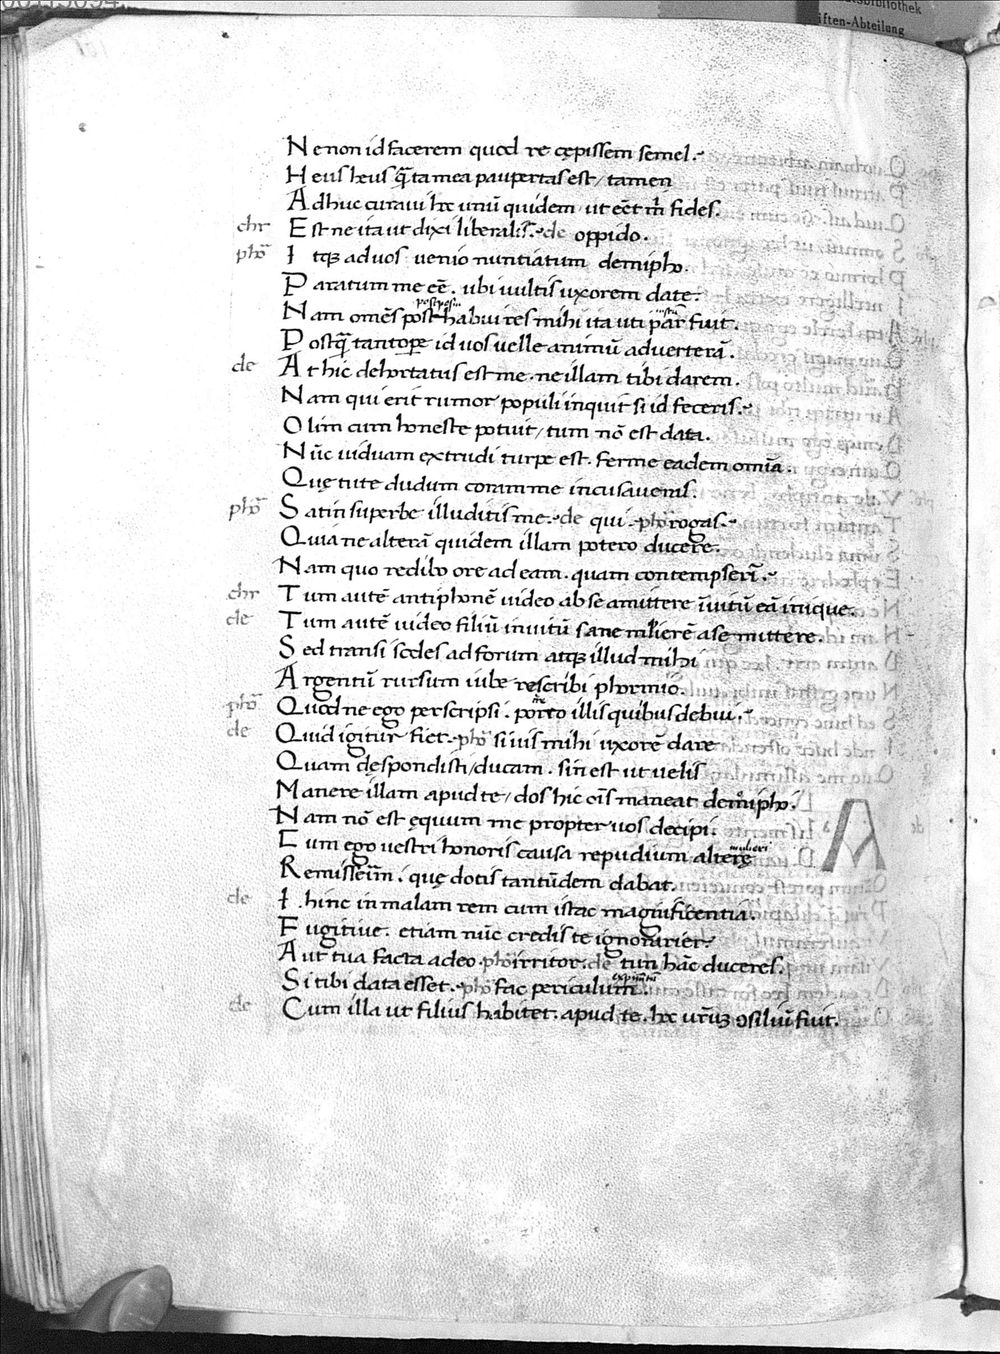 Ne non id facerem quod re cępissem semel.
Heus heus quā ta mea paupertas est / tamen
Adhuc curaui hoc unū quidem ut eēt m̄ fides.
chr Est ne ita ut dixi liberalis. de oppido.
phō Itqꝫ ad uos uenio nuntiatum demipho.
Paratum me eē. ubi uultis uxorem date.
Nam omēs posthabui res mihi ita uti par̄ fuit.
Postq̄ tantoꝑe id uos uelle animū aduerterā.
de At hic dehortatus est me. ne illam tibi darem.
Nam qui erit rumor populi inquit si id feceris.
Olim cum honeste potuit / tum nō est data.
Nūc uiduam extrudi turpe est. ferme eadem omīa.
Quę tute dudum coram me incusaueras.
phō Satin superbe illuditis me. de qui. phō rogas.
Quia ne alterā quidem illam potero ducere.
Nam quo redibo ore ad eam. quam contempserī.
chr Tum autē antiphonē uideo ab se amittere īuitū eā inique.
de Tum autē uideo filiū inuitū sane mulierē a se mittere.
Sed transi sodes ad forum atqꝫ illud mihi
Argentū rursum iube rescribi phormio.
phō Quod ne ego perscripsi. porro illis quibus debui.
de Quid igitur fiet. phō si uis mihi uxorē dare
Quam despondisti / ducam. sin est ut uelis
Manere illam apud te / dos hic oīs maneat demipho.
Nam nō est ęquum me propter uos decipi.
Cum ego uestri honoris causa repudium alterę
Remisserim. quę dotis tantūdem dabat.
de I hinc in malam rem cum istac magnificentia.
Fugitiue. etiam nūc credis te ignorarier.
Aut tua facta adeo. phō irritor. de tun hāc duceres.
Si tibi data esset. phō fac periculum.
de Cum illa ut filius habitet. apud te. hoc ur̄uꝫ ꝯsiliū fuit.